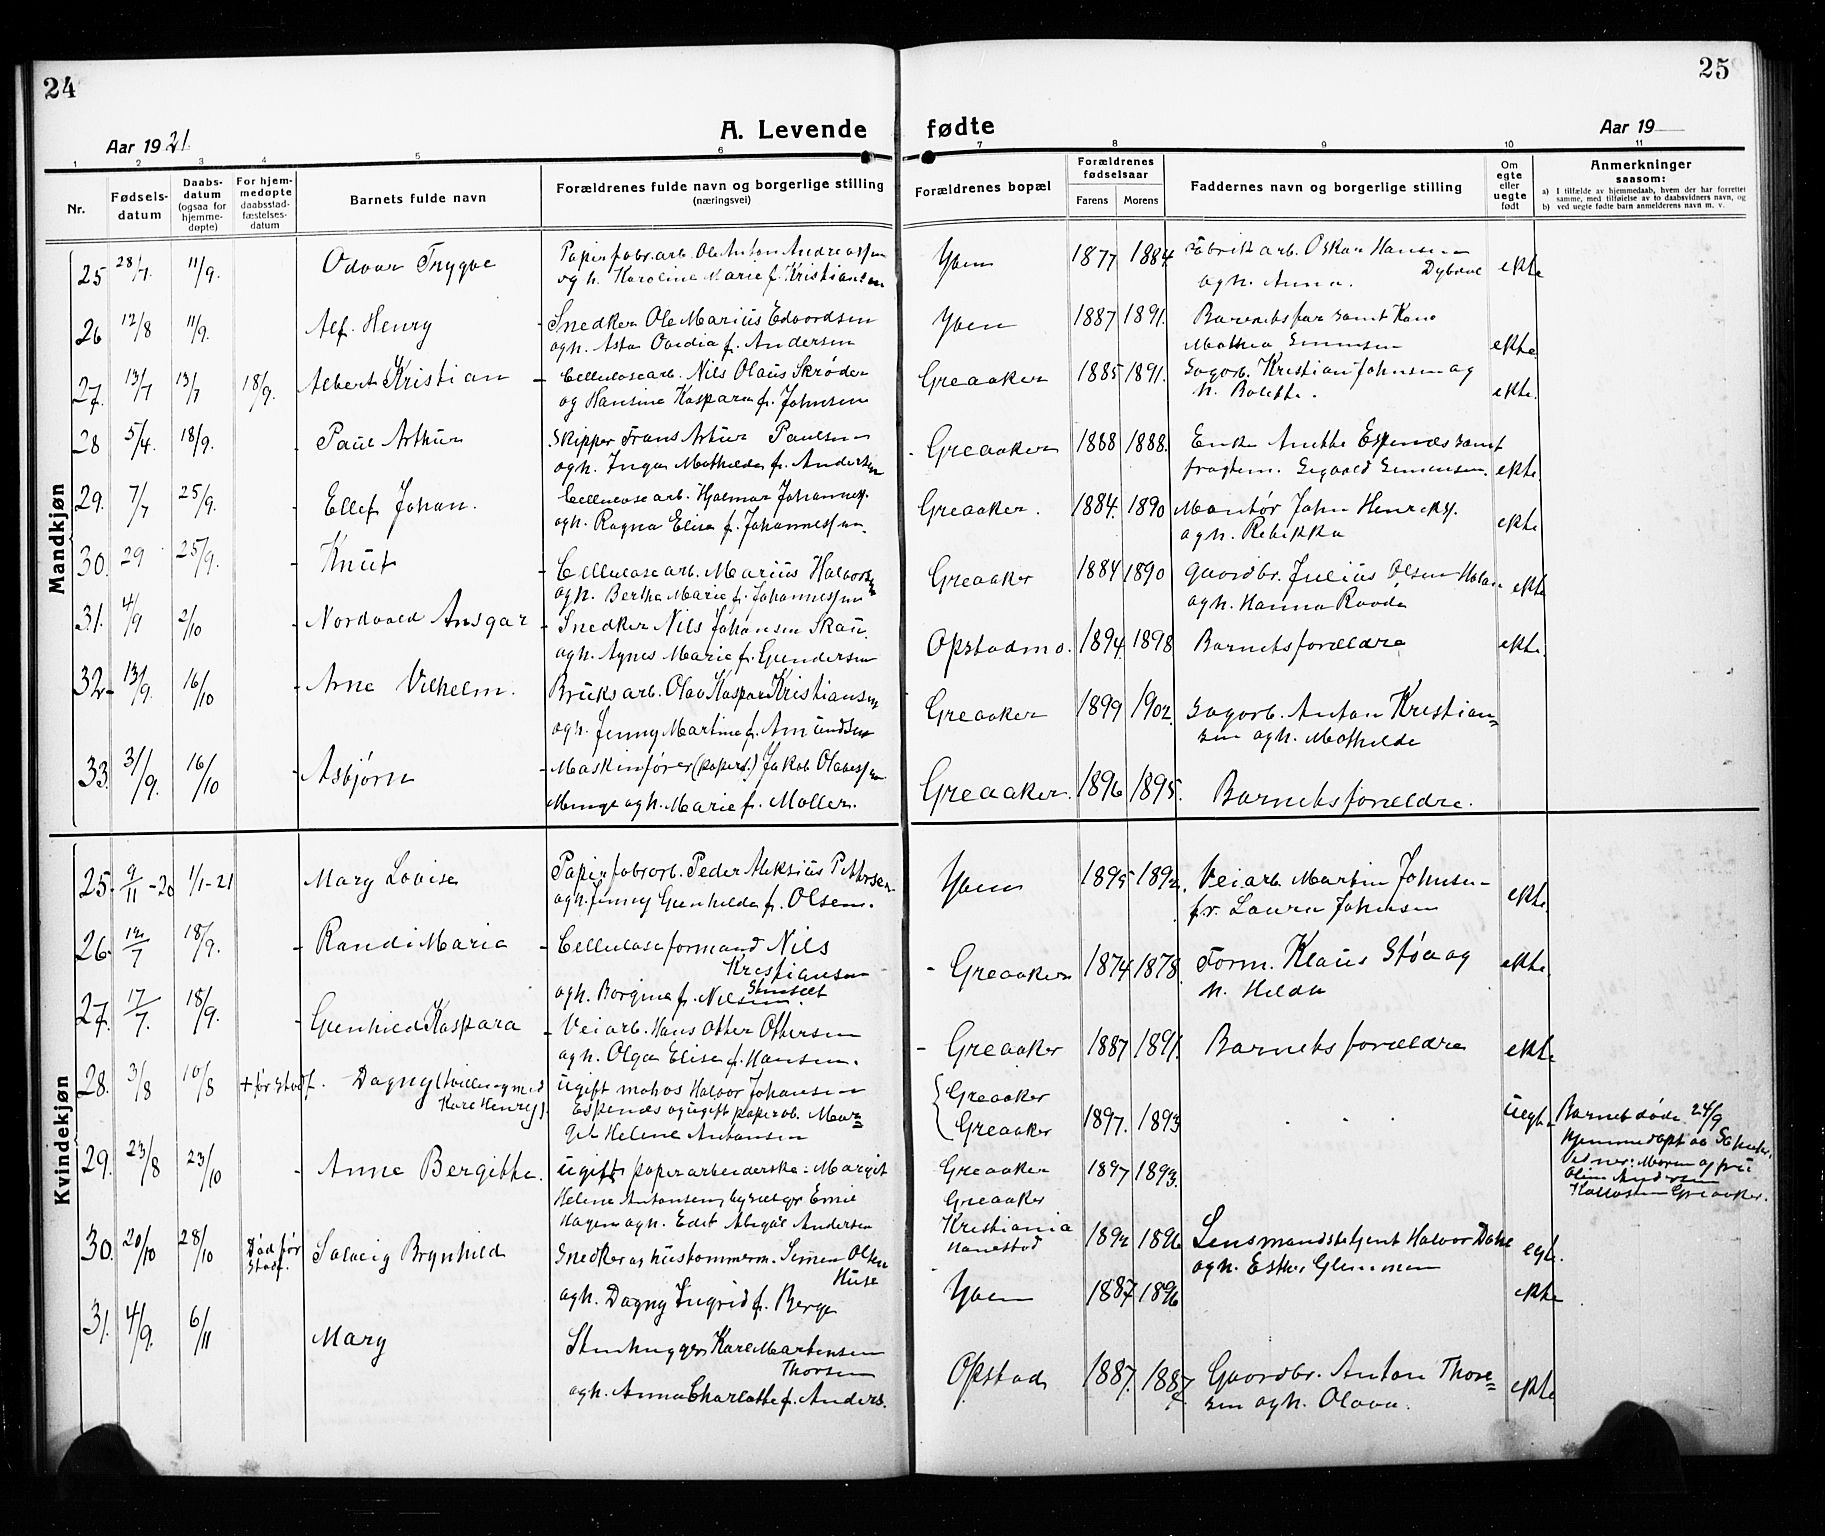 24
25
Aar 1921
A. Levende fødte
Aar 19
1 2 3 4 5 6 7 8 9 10 11
Nr.
Fødsels-
datum
Daabs-
datum
(ogsaa for
hjemme-
døpte)
For hjem-
medøpte
daabsstad-
fæstelses-
datum
Barnets fulde navn
Forældrenes fulde navn og borgerlige stilling
(næringsvei)
Forældrenes bopæl
Forældrenes
fødselsaar
Farens Morens
Faddernes navn og borgerlige stilling
Om
egte
eller
uegte
født
Anmerkninger
saasom:
a) I tilfælde av hjemmedaab, hvem der har forrettet
samme, med tilføielse av to daabsvidners navn, og
b) ved uegte fødte barn anmelderens navn m. v.
Mandkjøn
25 28/7 11/9 Odvar Trygve
Papirfabr.arb. Ole Anton Andreassen
og h. Karoline Marie f. Kristiansen
Yven 1877 1884
Fabrikarb. Oskar Hansen
Dybdal
og h. Anna.
ekte
26 12/8 11/9 Alf Henry
Snedker Ole Marius Edvardsen
og h. Asta Ovidia f. Andersen
Yven 1887 1891.
Barnets far samt Kone
Mathea Simensen
ekte.
27. 13/7 13/7 18/9. Albert Kristian
Cellulosearb. Nils Olaus Skrøder
og Hansine Kaspara f. Johnsen
Greaaker 1885 1891.
Sagarb. Kristian Johnsen og
h. Bolette.
ekte.
28 5/4. 18/9. Paul Arthur
Skipper Frans Artur Paulsen
og h. Inga Mathilde f. Andersen
Greaaker 1888 1888.
Enke Anette Espenæs samt
fragtem. Sigvald Simensen.
ekte.
29. 7/7 25/9. Ellef Johan.
Cellulosearb. Hjalmar Johannes.
og h. Ragna Elise f. Johannessen.
Greaaker. 1884. 1890
Montør John Henriks.
og h. Rebekka
ekte
30. 29 25/9. Knut
Cellulosearb. Marius Halvorsen
og h. Berthe Marie f. Johannessen
Greaaker 1884 1890
Gaardbr. Julius Olsen
og h. Hanna
ekte
31. 4/9 2/10 Nordvald Ansgar
Snedker Nils Johansen Skau.
og h. Agnes Marie f. Gundersen
Opstadmo. 1894. 1898
Barnets forældre
ekte.
32. 13/9. 16/10 Arne Vilhelm.
Bruksarb. Olav Kaspar Kristiansen
og h. Jenny Martine f. Amundsen
Greaaker 1899 1902.
Sagarb. Anton Kristian-
sen og h. Mathilde
33. 31/9. 16/10 Asbjørn
Maskinfører (papirf.) Jakob Olaussen
Minge og h. Marie f. Moller.
Greaaker. 1896 1895.
Barnets forældre.
Kvindekjøn
25. 9/11-20 1/1-21 Mary Lovise
Papirfabrarb. Peder Aleksius Pettersen
og h. Jenny Gunhilda f. Olsen.
Yven 1895 1892.
Veiarb. Martin Johnsen
fr. Laura Johnsen
ekte.
26. 12/7 18/9. Randi Marie
Celluloseformand Nils
Kristiansen
og h. Borgine f. Nilsen.
Greaaker 1874 1878.
Form. Klaus Støa og
h. Hilda
ekte.
27. 17/7. 18/9. Gunhild Kaspara
Veiarb. Hans Otter Ottersen
og h. Olga Elise f. Hansen.
Greaaker 1887 1891.
Barnets forældre
ekte
28. 3/8 10/8 + før stadf. Dagny (tvilling med
Kåre Henry).
ugift matros Halvor Johansen
Espenæs og ugift papirarb. Mar-
git Helene Antonsen
Greaaker
Greaaker 1897. 1893
uegte
Barnet døde 24/9
Hjemmedøpt
Vidner: Moren og fru
Oline Andersen
Greaaker.
29. 23/8 23/10 Anne Bergitte.
ugift papirarbeiderske: Margit
Helene Antonsen,
og h. Edit Abigal Andersen
Greaaker 1897 1893.
Greaaker
30. 20/10 28/10 Død før
stadf. Solveig Brynhild
Snedker og hustømmerm. Simen Olsen
Huse
og h. Dagny Ingrid f. Berge
Kristiania
1892 1896
Lensmandsbetjent Halvor Dahl
og h. Esther Glemmen
egte.
Yven 1887 1896
ekte
31. 4/9. 6/11 Mary
Stenhugger Karl Martensen
Thorsen
og h. Anna Charlotte f. Anders.
Opstad 1887. 1887.
Gaardbr. Anton Thore-
sen og h. Olava.
ekte